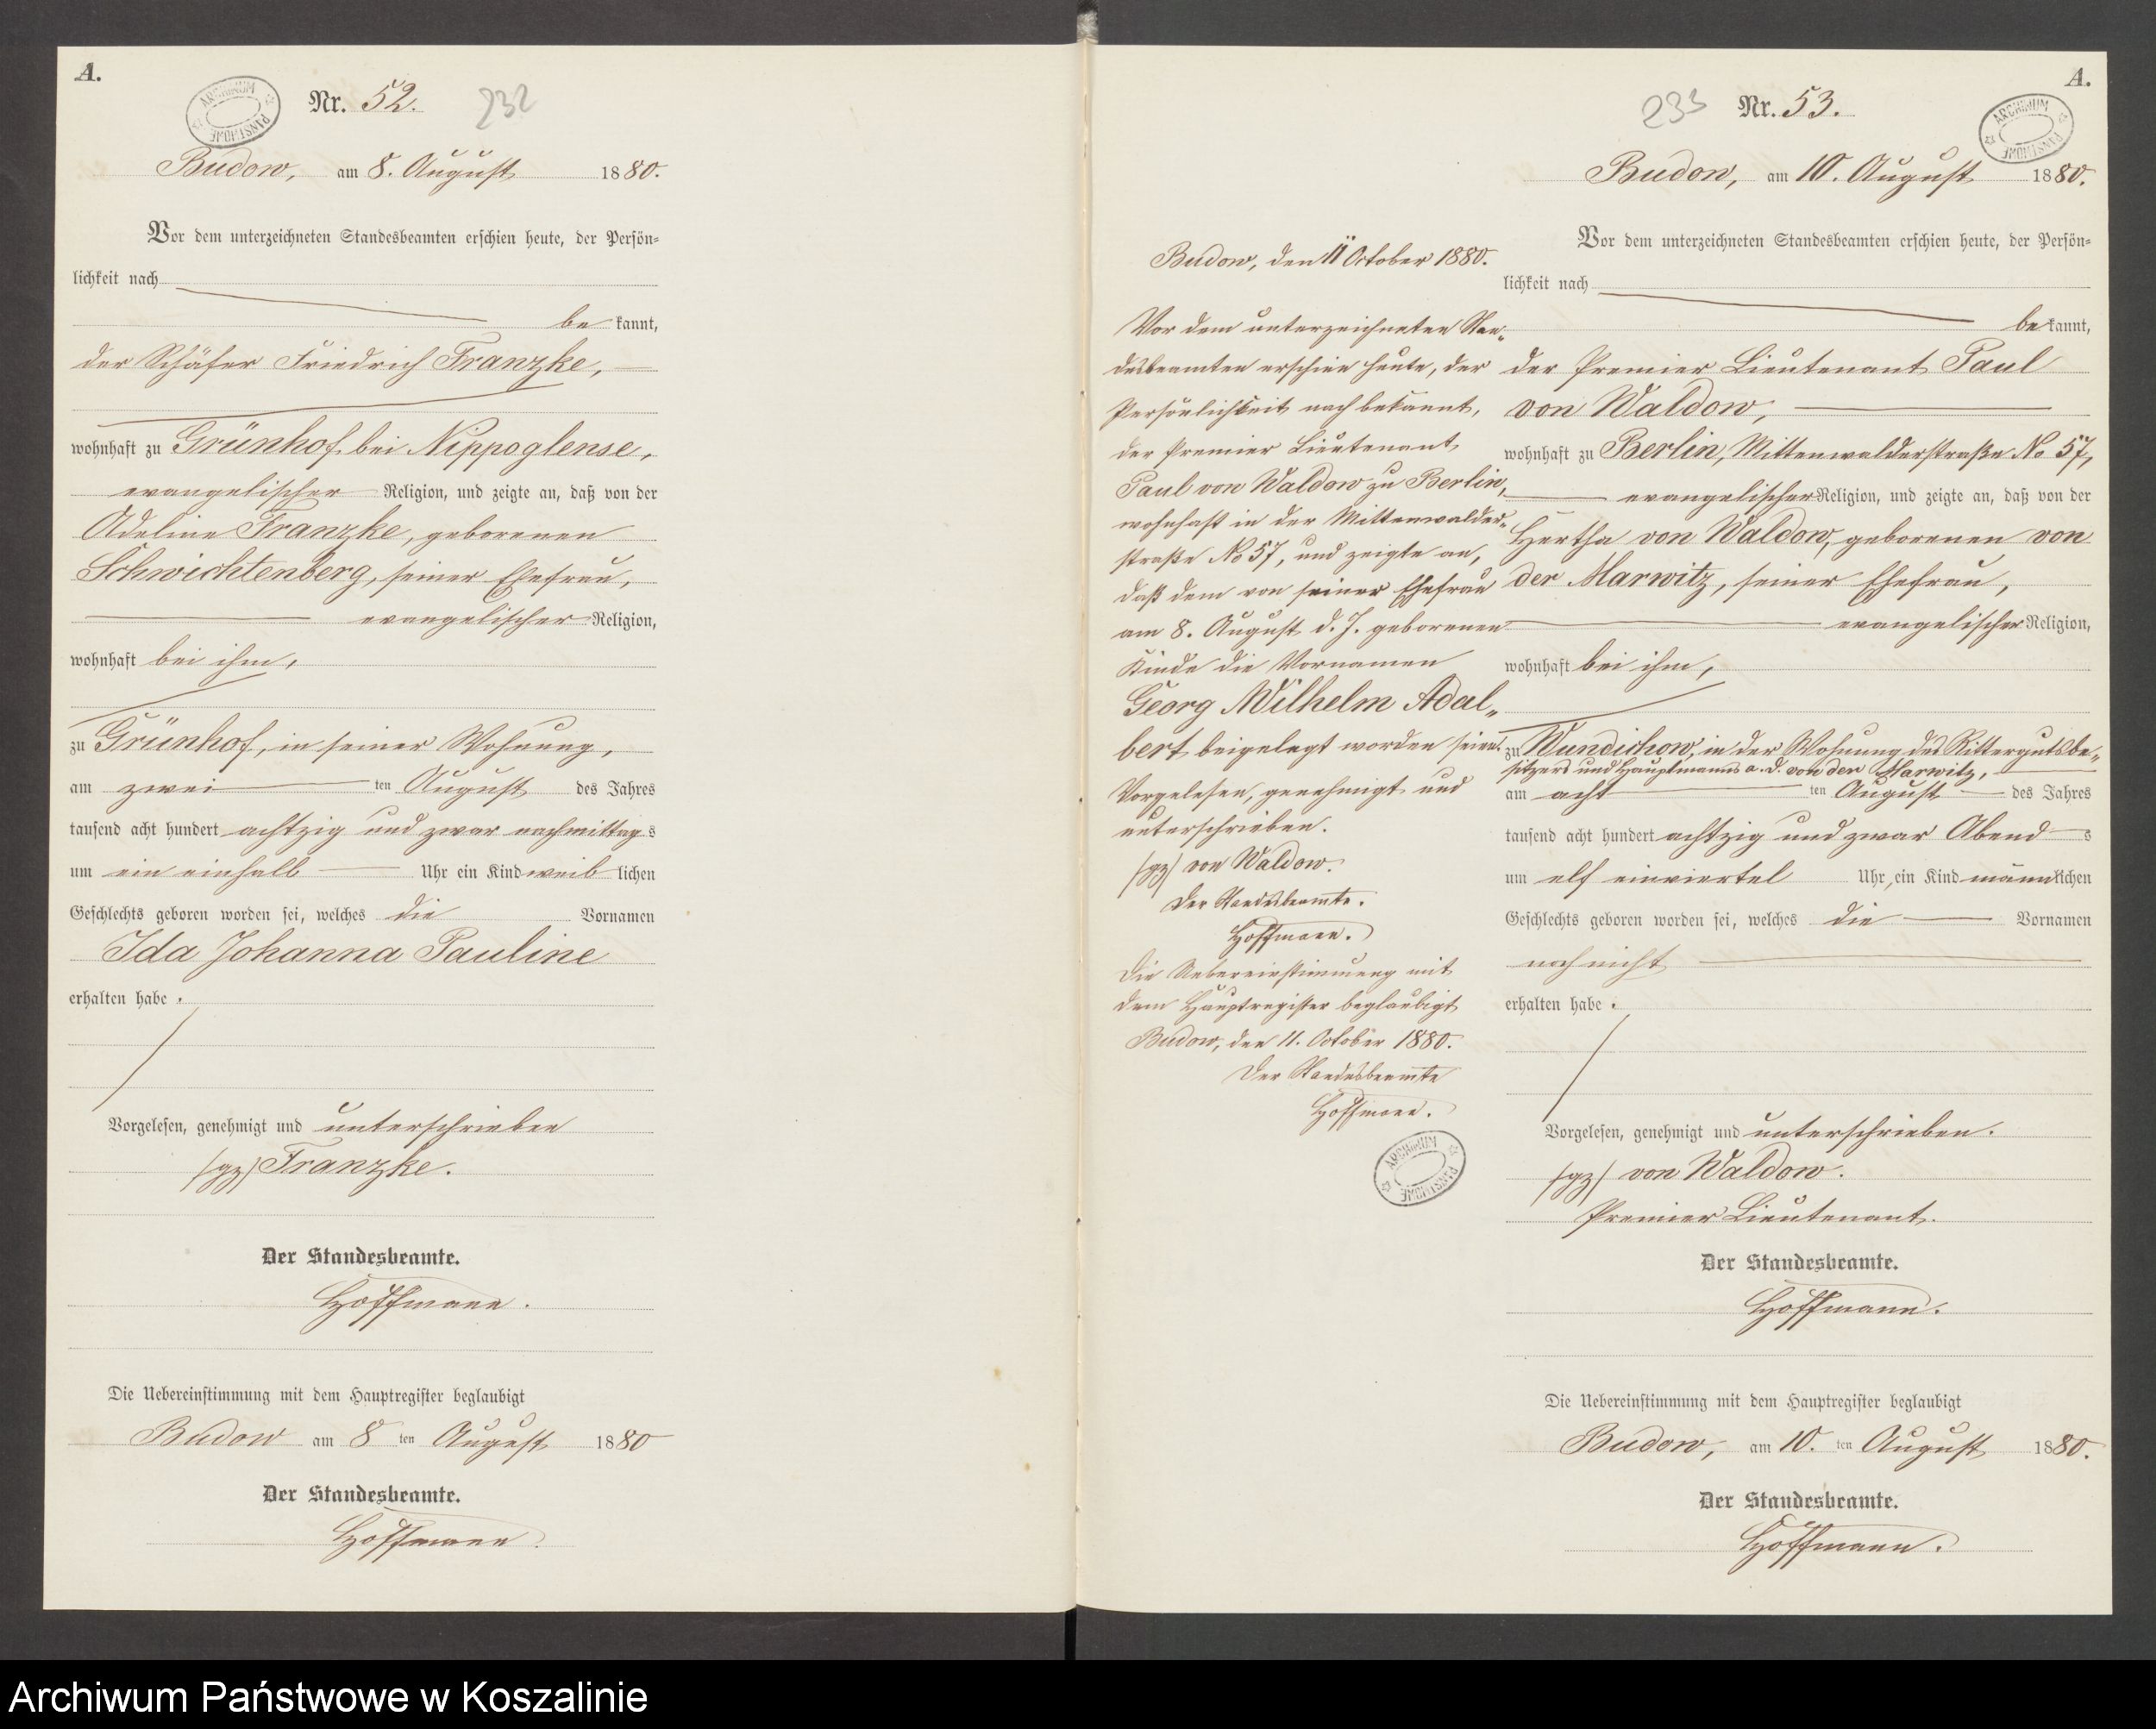 A.
ARCHIWUM PAŃSTWOWE
Nr. 52. 232
Budow, am 8. August 1880.
Vor dem unterzeichneten Standesbeamten erschien heute, der Persön-
lichkeit nach
be kannt,
der Schäfer Friedrich Franzke,
wohnhaft zu Grünhof bei Nippoglense,
evangelischer Religion, und zeigte an, daß von der
Adeline Franzke, geborenen
Schwichtenberg, seiner Ehefrau,
evangelischer Religion,
wohnhaft bei ihm,
zu Grünhof, in seiner Wohnung,
am zwei ten August des Jahres
tausend acht hundert achtzig und zwar nachmittag s
um ein einhalb Uhr ein Kind weib lichen
Geschlechts geboren worden sei, welches die Vornamen
Ida Johanna Pauline
erhalten habe .
Vorgelesen, genehmigt und unterschrieben
/gz/ Franzke.
Der Standesbeamte.
Hoffmann.
Die Uebereinstimmung mit dem Hauptregister beglaubigt
Budow am 8 ten August 1880
Der Standesbeamte.
Hoffmann.
A.
233 Nr. 53.
ARCHIWUM PAŃSTWOWE
Budow, am 10. August 1880.
Vor dem unterzeichneten Standesbeamten erschien heute, der Persön-
lichkeit nach
be kannt,
der Premier Lieutenant Paul
von Waldow,
wohnhaft zu Berlin, Mittenwalderstraße No 57,
evangelischer Religion, und zeigte an, daß von der
Hertha von Waldow, geborenen von
der Marwitz, seiner Ehefrau,
evangelischer Religion,
wohnhaft bei ihm,
zu Wundichow, in der Wohnung des Rittergutsbe-
sitzers und Hauptmanns a. D. von der Marwitz,
am acht ten August des Jahres
tausend acht hundert achtzig und zwar Abend s
um elf einviertel Uhr, ein Kind männlichen
Geschlechts geboren worden sei, welches die Vornamen
noch nicht
erhalten habe .
Vorgelesen, genehmigt und unterschrieben.
/gz/ von Waldow.
Premier Lieutenant.
Der Standesbeamte.
Hoffmann.
Die Uebereinstimmung mit dem Hauptregister beglaubigt
Budow, am 10. ten August 1880.
Der Standesbeamte.
Hoffmann.
Budow, den 11 October 1880.
Vor dem unterzeichneten Stan-
desbeamten erschien heute, der
Persönlichkeit nach bekannt,
der Premier Lieutenant
Paul von Waldow zu Berlin,
wohnhaft in der Mittenwalder-
straße No 57, und zeigte an,
daß dem von seiner Ehefrau
am 8. August d. J. geborenen
Kinde die Vornamen
Georg Wilhelm Adal-
bert beigelegt worden seien.
Vorgelesen, genehmigt und
unterschrieben.
/gz/ von Waldow.
Der Standesbeamte.
Hoffmann.
Die Uebereinstimmung mit
dem Hauptregister beglaubigt
Budow, den 11. October 1880.
Der Standesbeamte
Hoffmann.
ARCHIWUM PAŃSTWOWE
Archiwum Państwowe w Koszalinie